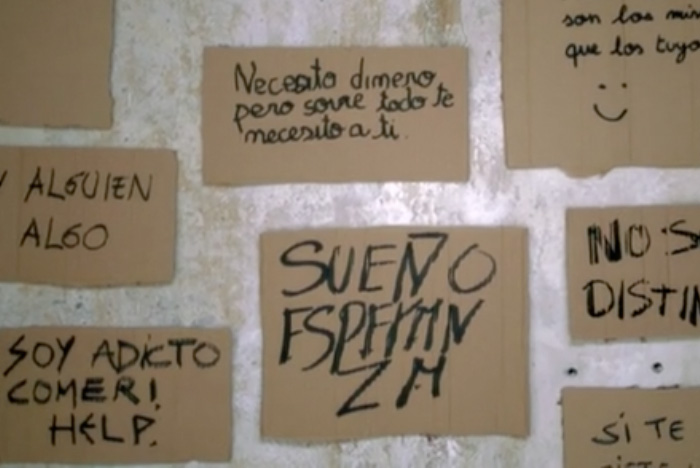 son los mis
que los tuyo
Necesito dinero,
pero sovre todo te
necesito a ti.
Y ALGUIEN
ALGO
SUEÑO
ESPERAN
ZA
NO S
DISTIN
SOY ADICTO
COMER!
HELP.
SI TE